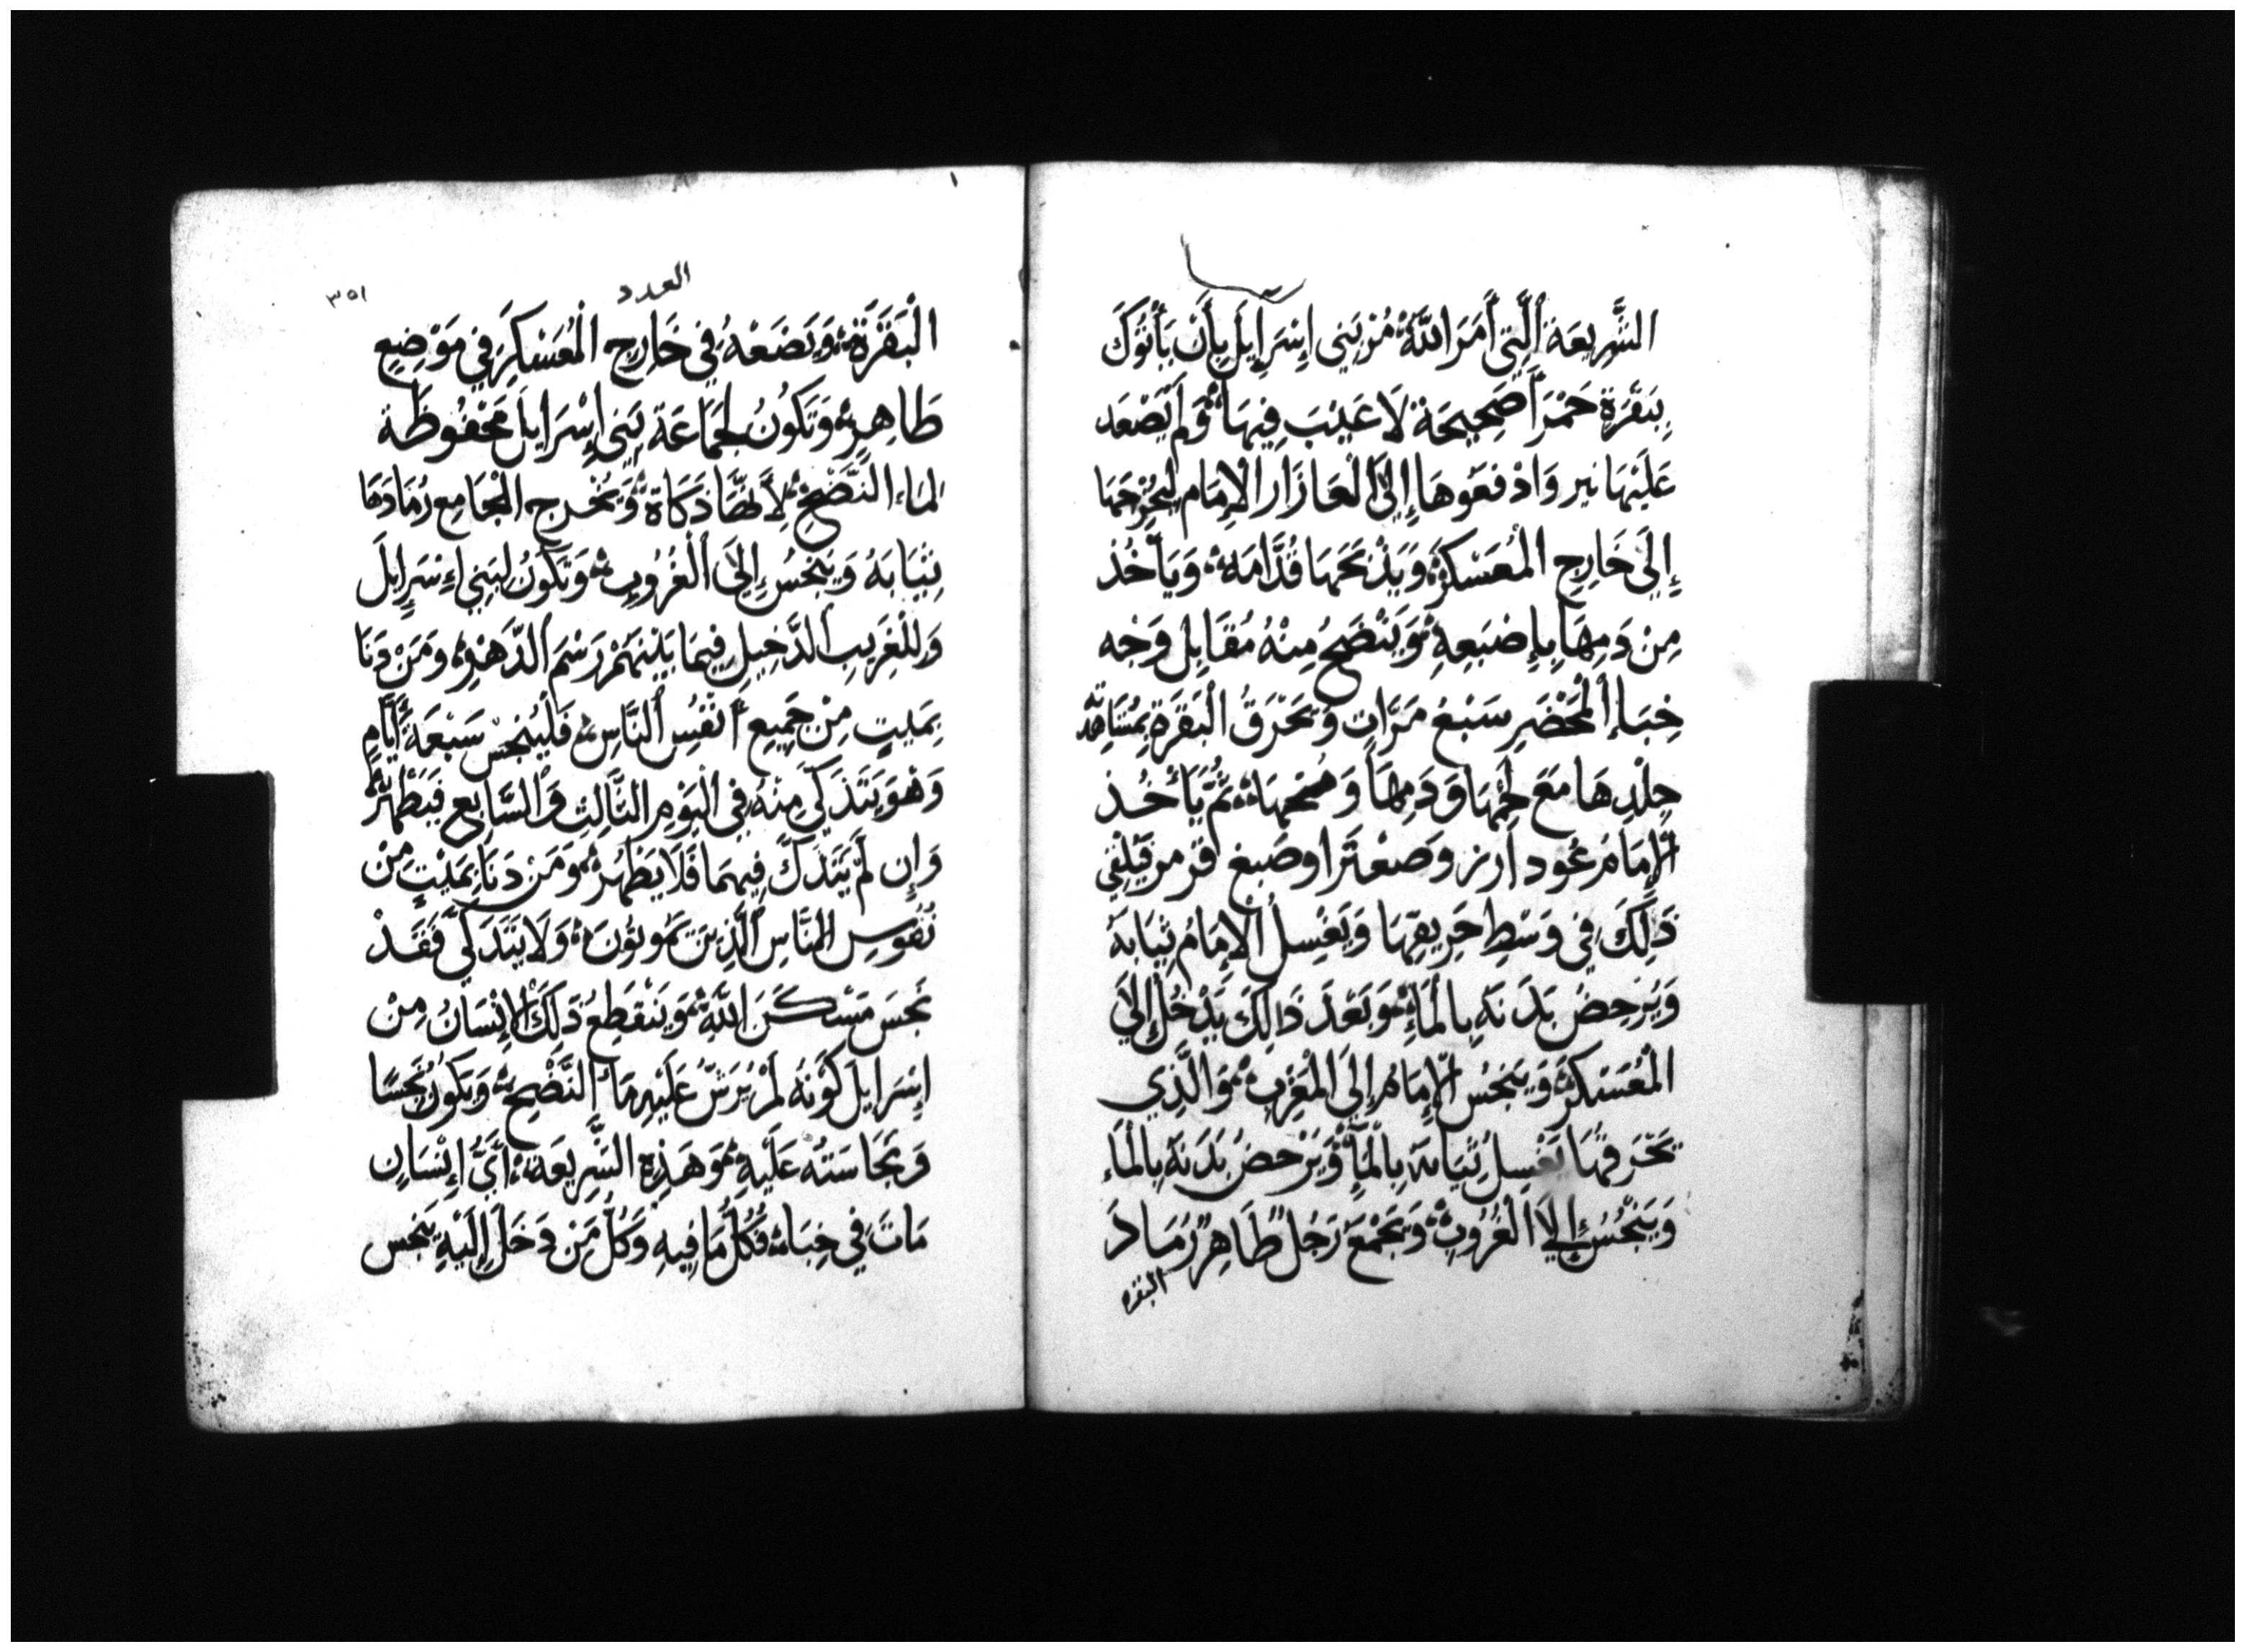 الشَّرِيعَة الَّتِي أَمَرَ اللَّهُ مُرْ بَنِي إِسْرَايِلَ بِأَن يَأْتُوكَ
بِبَقَرَةٍ حَمْرَا صَحِيحَة لَا عَيْبَ فِيهَا وَلَم يَصْعَد
عَلَيْهَا نير وَادْفَعُوهَا إِلَى الْعَازَار الْإِمَام لِيُخْرِجَهَا
إِلَى خَارِجِ الْمُعَسْكَرِ وَيَذْبَحَهَا قُدَّامَهُ وَيَأْخُذ
مِنْ دَمِهَا بِإِصْبَعِهِ وَيَنْضَحُ مِنْهُ مُقَابِل وَجْه
خِبَاءِ الْمَحْضَرِ سَبْعَ مَرَّاتٍ وَتَحْرَقُ الْبَقَرَة بِمُشَاهَدَتِهِ
جِلْدِهَا مَعَ لَحْمِهَا وَدَمِهَا وَ ثُمَّ يَأْخُذ
الْإِمَامُ عُود أرز وَصَعْتَرا وصَبغ قرمز فَيُلْقِي
ذَلِكَ فِي وَسْطِ حَرِيقِهَا وَيَغْسِلُ الْإِمَامُ ثِيَابَهُ
وَيَرْحِضُ بَدَنَهُ بِالْمَاءِ وَبَعْدَ ذَالِكَ يَدْخُلُ إِلَى
الْمُعَسْكَرِ وَيَنْجُسُ الْإِمَامُ إِلَى الْمَغْرِبِ وَالَّذِي
يَحْرِقُهَا يَغْسِلُ ثِيَابَهُ بِالْمَاءِ وَيَرْحَضُ بَدَنَهُ بِالْمَاءِ
وَيَنْجُسُ إِلَى الْغُرُوبِ وَيَجْمَعُ رَجُلٌ طَاهِرٌ رَمَادَ
البقره
العدد
٣٥١
الْبَقَرَةِ وَيَضَعْهُ فِي خَارِجِ الْمُعَسْكَرِ فِي مَوْضِعٍ
طَاهِرٍ وَتَكُونُ لِجَمَاعَةِ بَنِي إِسْرَايِلَ مَحْفُوظَة
لماء النَّضْحِ لِأَنَّهَا ذَكَاةٌ وَيُخْرِج الْجَامِع رَمَادَهَا
بِثِيَابَهُ وَيَنْجُسُ إِلَى الْغُرُوبِ وَتَكُونُ لِبَنِي إِسْرَايِلَ
وَلِلْغَرِيبِ الدَّخِيلِ فِيمَا بَيْنَهُمْ رَسْمَ الدَّهْرِ وَمَنْ دَنَا
بِمَيِتٍ مِنْ جَمِيعِ أَنْفُسِ النَّاسِ فَلْيَنْجُس سَبْعَةَ أَيَّامٍ
وَهْوَ يَتَذَكَّى مِنْهُ فِي الْيَوْمِ الثَّالِثِ وَالسَّابِعِ فَيَطْهُرُ
وَإِن لَمْ يَتَذَكَّ فِيهِمَا فَلَا يَطْهُرُ وَمَنْ دَنَا بِمَيْتٍ مِنْ
نُفُوسِ النَّاسِ الَّذِينَ يَمُوتُونَ وَلَا يَتَذَكَّى فَقَدْ
نَجَسَ مَسْكَنَ اللَّهِ وَيَنْقَطِعُ ذَلِكَ الْإِنْسَانُ مِنْ
إِسْرَايِلَ كَوْنَهُ لَمْ يُرَشَّ عَلَيْهِ مَاء النَّضْحِ وَيَكُونُ نَجِسًا
وَنَجَاسَتُه عَلَيْهِ وَهَذِهِ الشَّرِيعَة أَيُّ إِنْسَانٍ
مَاتَ فِي خِبَاء فَكُلُّ مَا فِيهِ وَكُلُّ مَنْ دَخَلَ إِلَيْهِ يَنْجُس